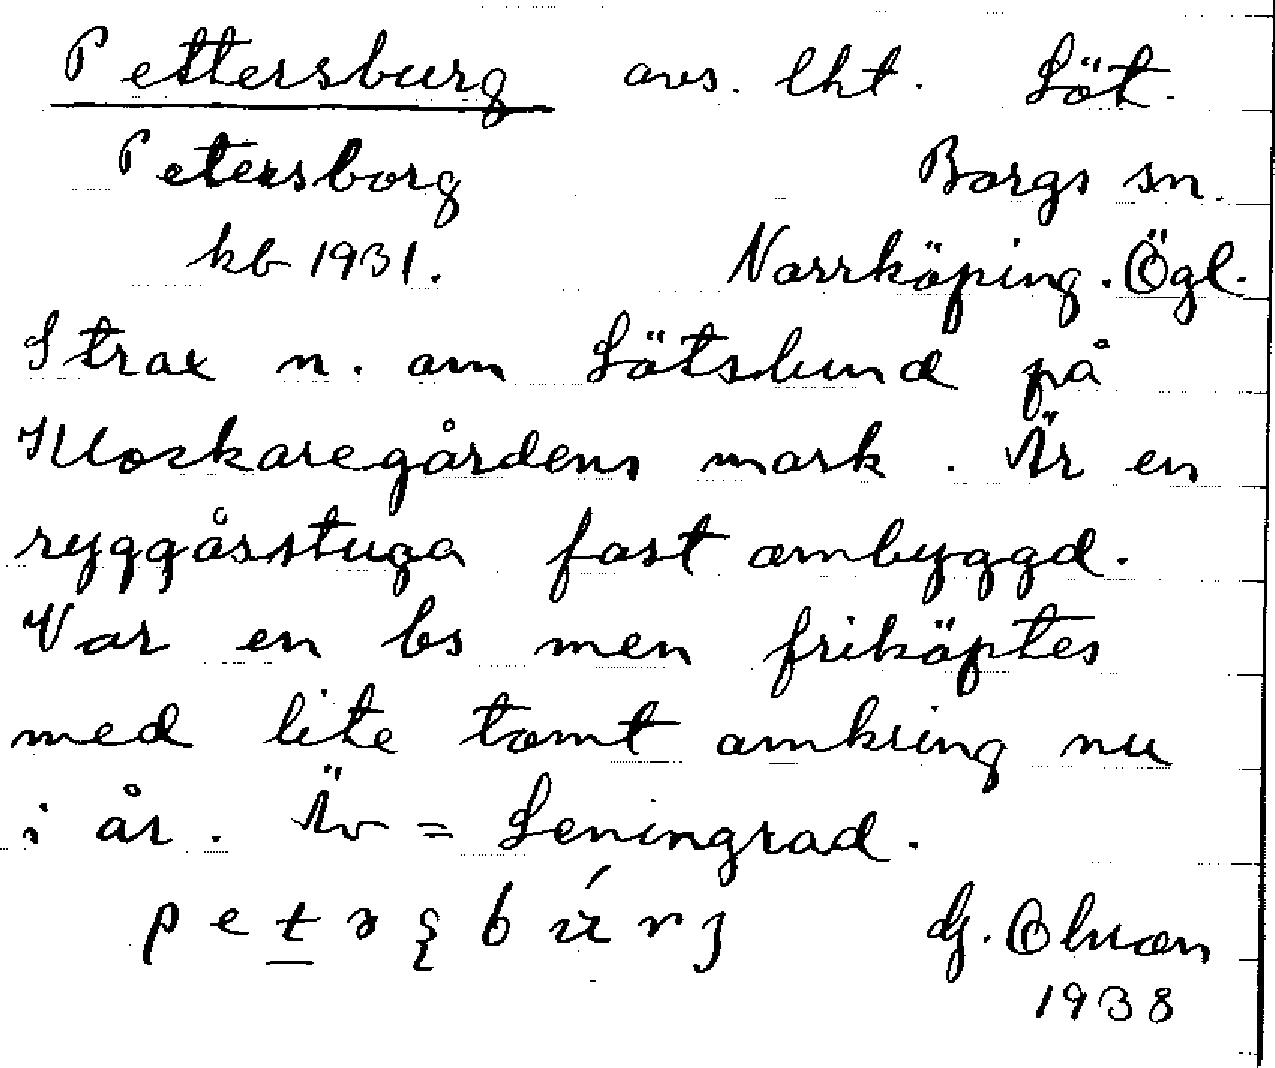 Pettersburg avs. lht. Löt.
Petersborg Borgs sn.
kb 1931. Norrköping. Ögl.
Strax n. om Lötslund på
Klockaregårdens mark. Är en
ryggåsstuga fast ombyggd.
Var en bs men friköptes
med lite tomt omkring nu
i år. Äv = Leningrad.
1938